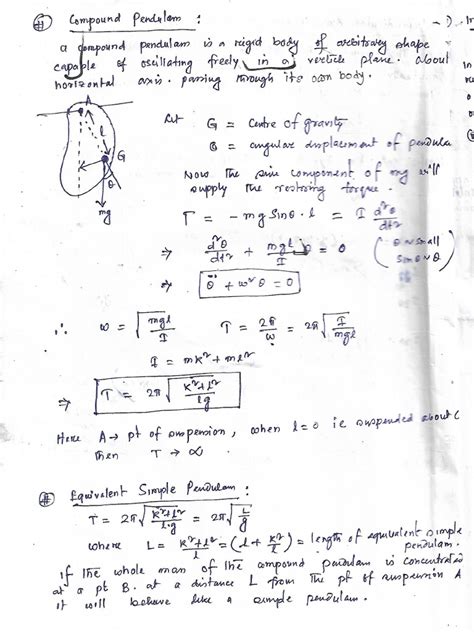 # Compound Pendulam :
a compound pendulam is a rigid body of arbitrary shape
capable of oscillating freely in a verticle plane. about
horizontal axis. passing through its own body.
A
l
G
θ
mg
Let G = Centre of gravity
θ = angular displacement of pendula
Now the sine component of mg will
supply the restoring torque.
τ = - mg Sinθ · l = I d²θ/dt²
⇒ d²θ/dt² + mgl/I θ = 0 (θ ~ small Sinθ ~ θ)
⇒ θ̈ + ω²θ = 0
∴ ω = √(mgl/I) T = 2π/ω = 2π√(I/mgl)
I = mk² + ml²
⇒ T = 2π√((k²+l²)/lg)
Here A → pt of suspension, when l = 0 ie suspended about
then T → ∞
# Equivalent Simple Pendulam :
T = 2π√((k²+l²)/l.g) = 2π√(L/g)
where L = (k²+l²)/l = (l + k²/l) = length of equivalent simple
pendulam.
If the whole mass of the compound pendulam is concentrated
at a pt B. at a distance L from the pt of suspension A
it will behave like a simple pendulam.